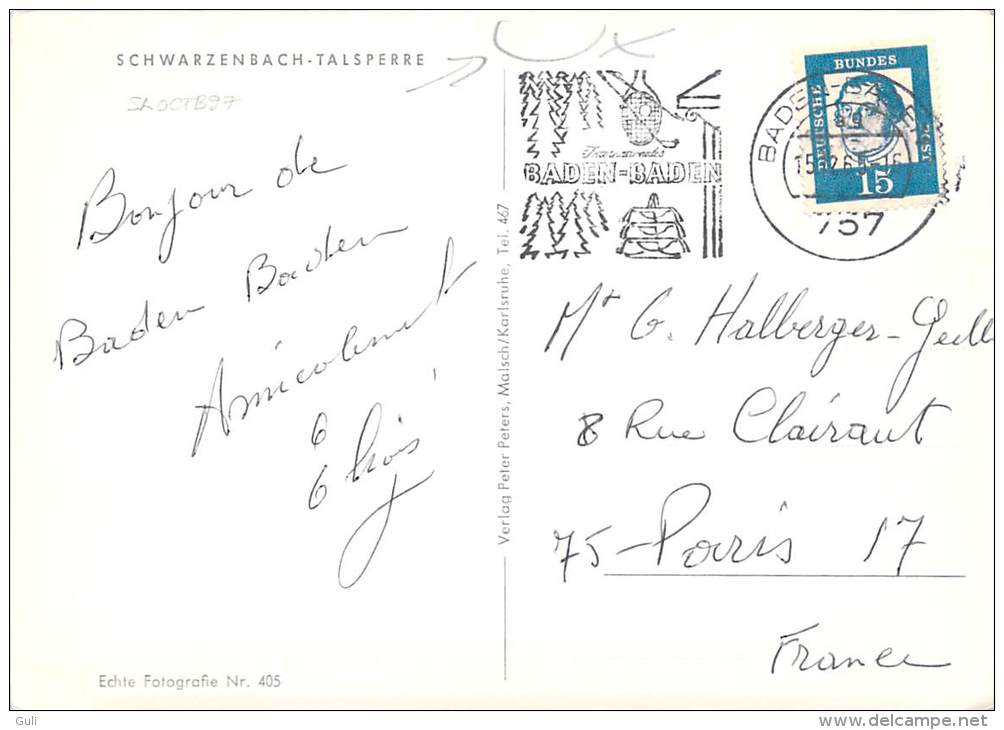 SCHWARZENBACH-TALSPERRE
Bonjour de
Baden Baden
Amicalement
BADEN-BADEN
BADEN-BADEN
757
DEUTSCHE
BUNDES
POST
15
Mr G. Halberger-
8 Rue Clairaut
75-Paris 17
France
Verlag Peter Peters, Malsch/Karlsruhe, Tel. 467
Echte Fotografie Nr. 405
Guli
www.delcampe.net